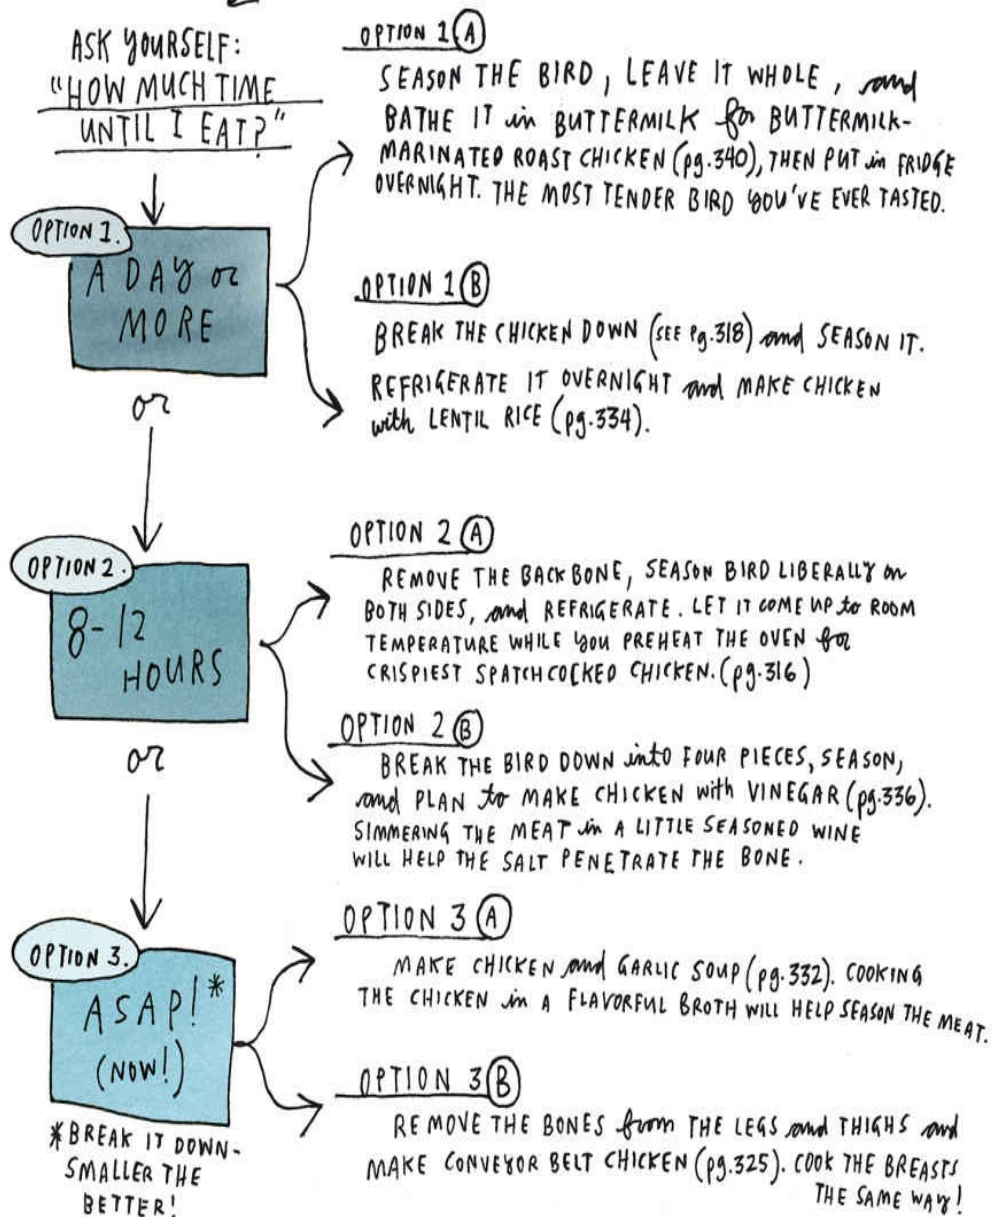 ASK YOURSELF:
"HOW MUCH TIME
UNTIL I EAT?"
OPTION 1.
A DAY or
MORE
OPTION 1 A
SEASON THE BIRD, LEAVE IT WHOLE, and
BATHE IT in BUTTERMILK for BUTTERMILK-
MARINATED ROAST CHICKEN (pg.340), THEN PUT in FRIDGE
OVERNIGHT. THE MOST TENDER BIRD YOU'VE EVER TASTED.
OPTION 1 B
BREAK THE CHICKEN DOWN (SEE Pg.318) and SEASON IT.
REFRIGERATE IT OVERNIGHT and MAKE CHICKEN
with LENTIL RICE (pg.334).
or
OPTION 2.
8-12
HOURS
OPTION 2 A
REMOVE THE BACKBONE, SEASON BIRD LIBERALLY on
BOTH SIDES, and REFRIGERATE. LET IT COME UP to ROOM
TEMPERATURE WHILE YOU PREHEAT THE OVEN for
CRISPIEST SPATCHCOCKED CHICKEN. (pg.316)
OPTION 2 B
BREAK THE BIRD DOWN into FOUR PIECES, SEASON,
and PLAN to MAKE CHICKEN with VINEGAR (pg.336).
SIMMERING THE MEAT in A LITTLE SEASONED WINE
WILL HELP THE SALT PENETRATE THE BONE.
or
OPTION 3.
ASAP!*
(NOW!)
*BREAK IT DOWN-
SMALLER THE
BETTER!
OPTION 3 A
MAKE CHICKEN and GARLIC SOUP (pg.332). COOKING
THE CHICKEN in A FLAVORFUL BROTH WILL HELP SEASON THE MEAT.
OPTION 3 B
REMOVE THE BONES from THE LEGS and THIGHS and
MAKE CONVEYOR BELT CHICKEN (pg.325). COOK THE BREASTS
THE SAME WAY!